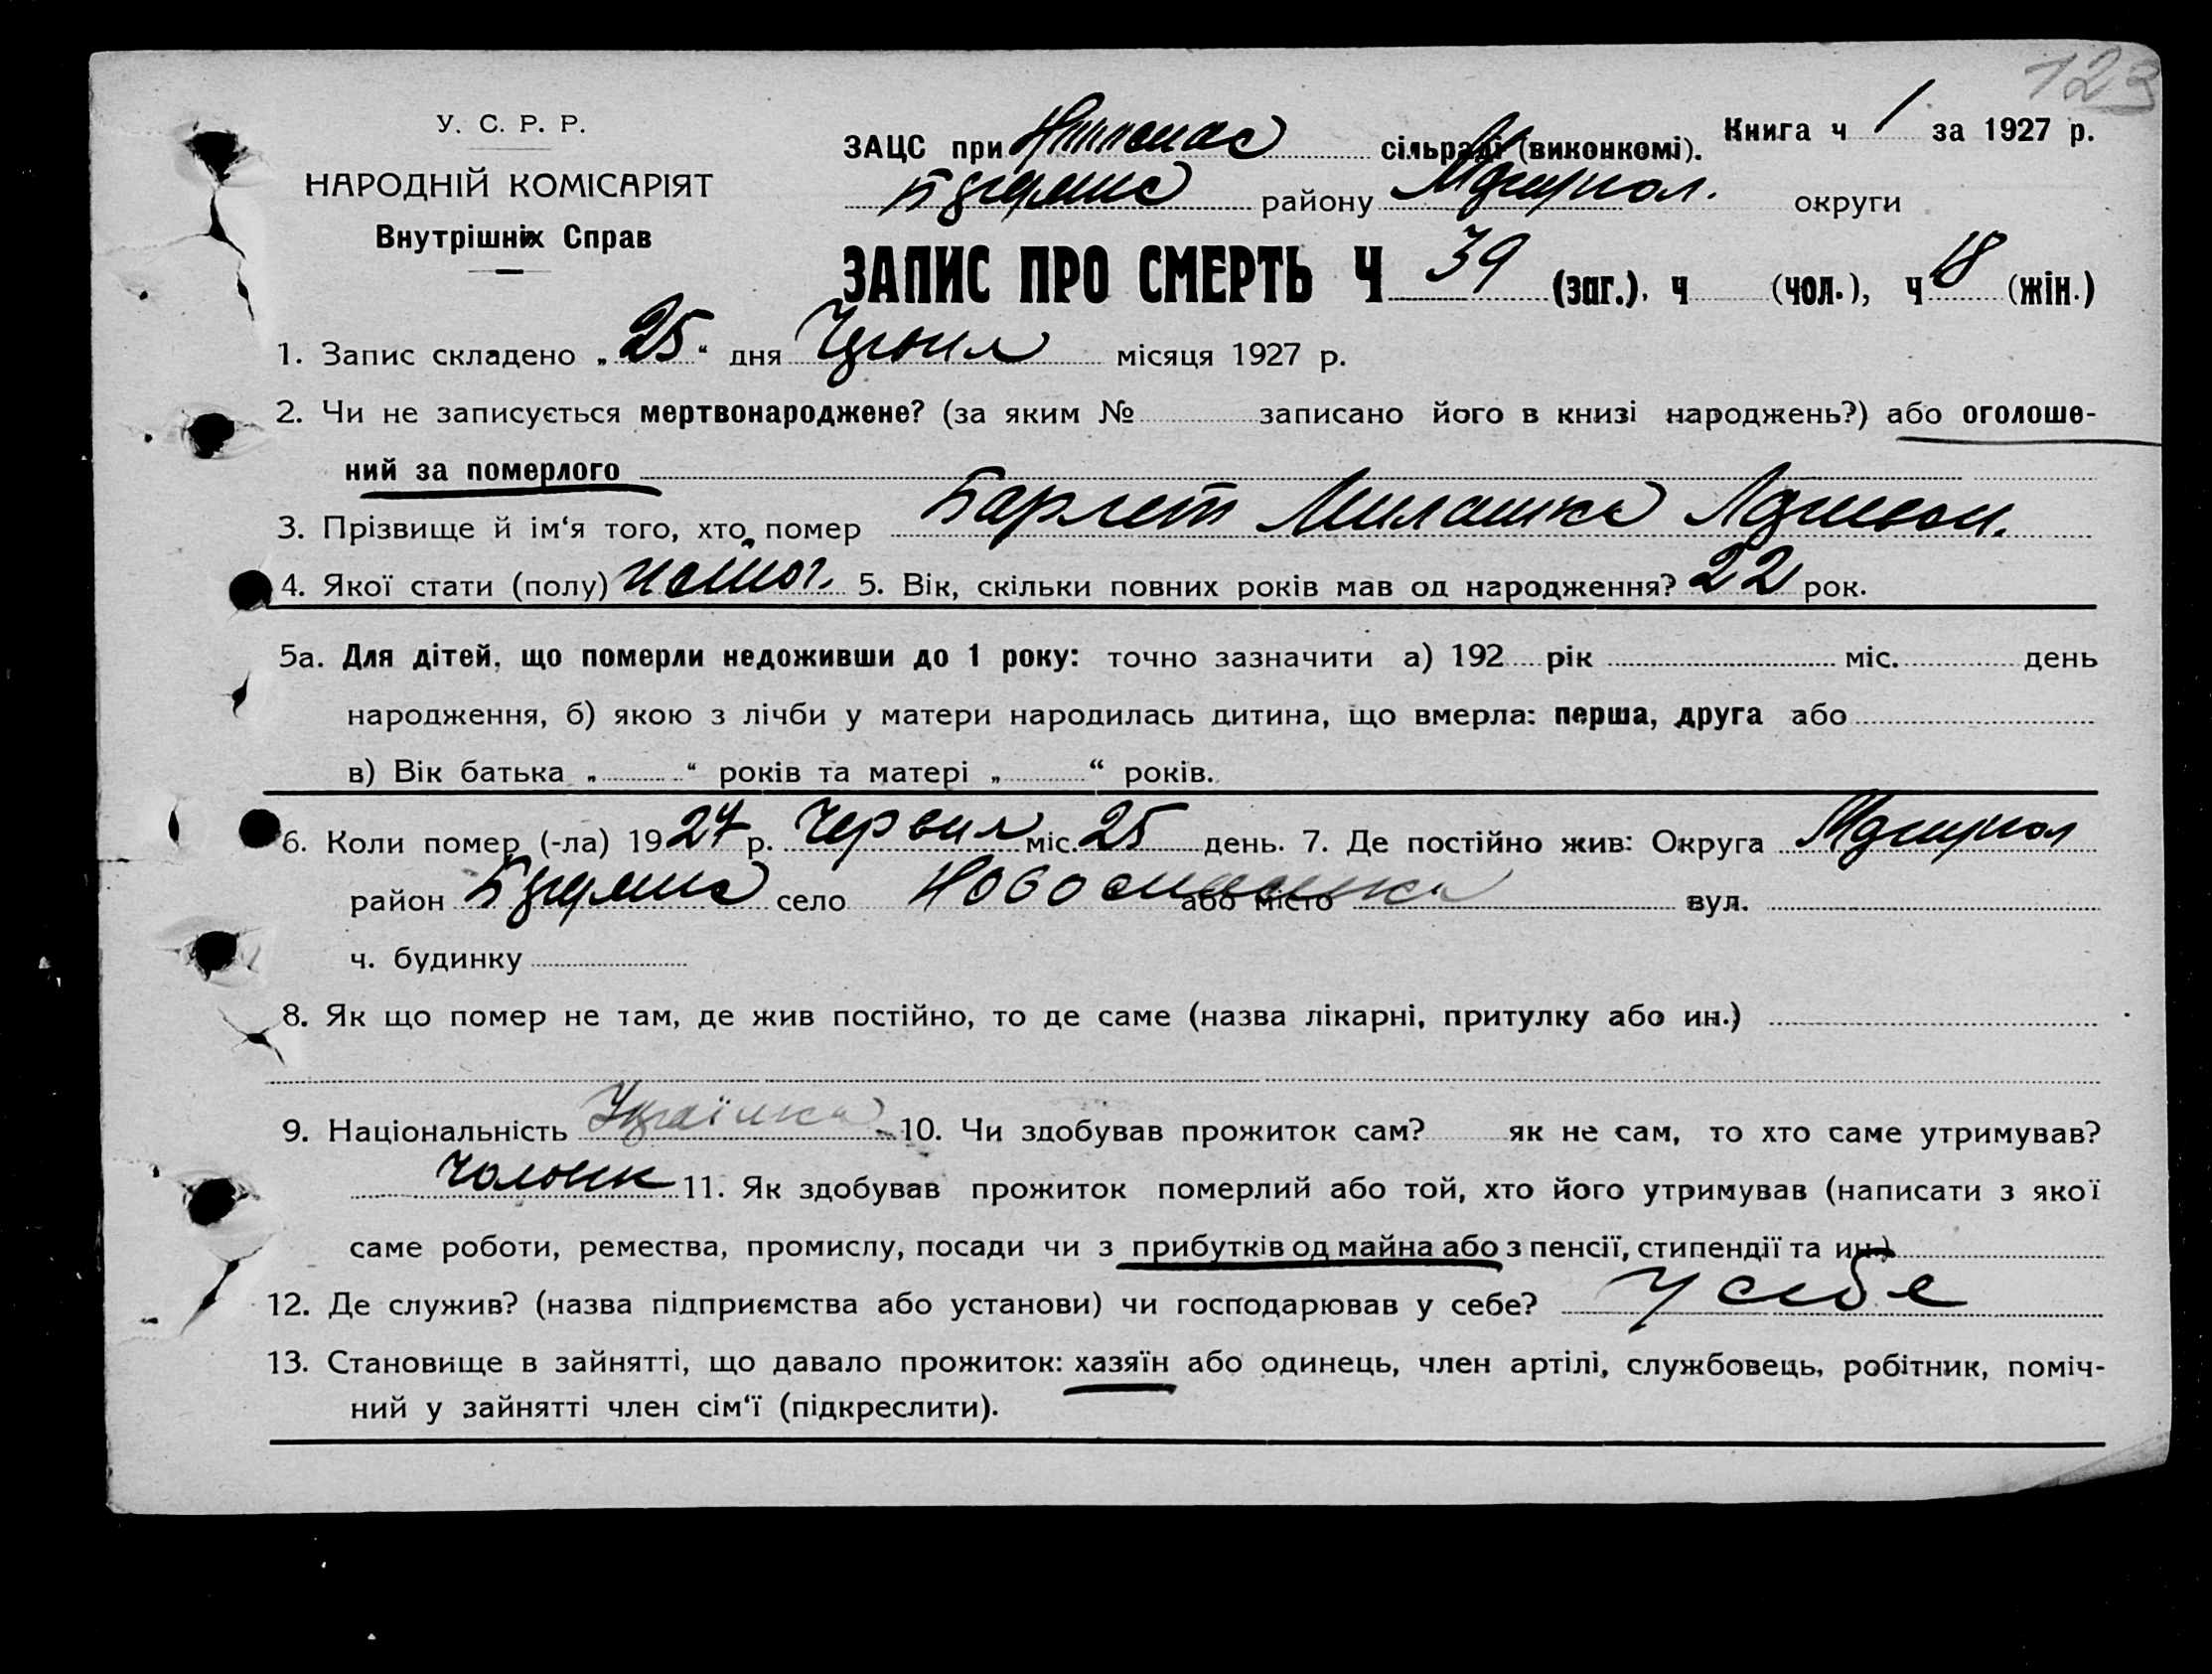 123
У. С. Р. Р.
НАРОДНІЙ КОМІСАРІЯТ
Внутрішніх Справ
ЗАЦС при сільраді (виконкомі). Книга ч 1 за 1927 р.
району округи
ЗАПИС ПРО СМЕРТЬ Ч 39 (заг.), ч (чол.), ч 18 (жін.)
1. Запис складено „ 25 “ дня місяця 1927 р.
2. Чи не записується мертвонароджене? (за яким № записано його в книзі народжень?) або оголоше-
ний за померлого
3. Прізвище й ім‘я того, хто помер
4. Якої стати (полу) 5. Вік, скільки повних років мав од народження? 22 рок.
5а. Для дітей, що померли недоживши до 1 року: точно зазначити а) 192 рік міс. день
народження, б) якою з лічби у матери народилась дитина, що вмерла: перша, друга або
в) Вік батька „ “ років та матері „ “ років.
6. Коли помер (-ла) 1927 р. Червня міс. 25 день. 7. Де постійно жив: Округа
район село або місто вул.
ч. будинку
8. Як що помер не там, де жив постійно, то де саме (назва лікарні, притулку або ин.)
9. Національність Українка 10. Чи здобував прожиток сам? як не сам, то хто саме утримував?
11. Як здобував прожиток померлий або той, хто його утримував (написати з якої
саме роботи, ремества, промислу, посади чи з прибутків од майна або з пенсії, стипендії та ин.)
12. Де служив? (назва підприємства або установи) чи господарював у себе? у себе
13. Становище в зайнятті, що давало прожиток: хазяїн або одинець, член артілі, службовець, робітник, поміч-
ний у зайнятті член сім‘ї (підкреслити).